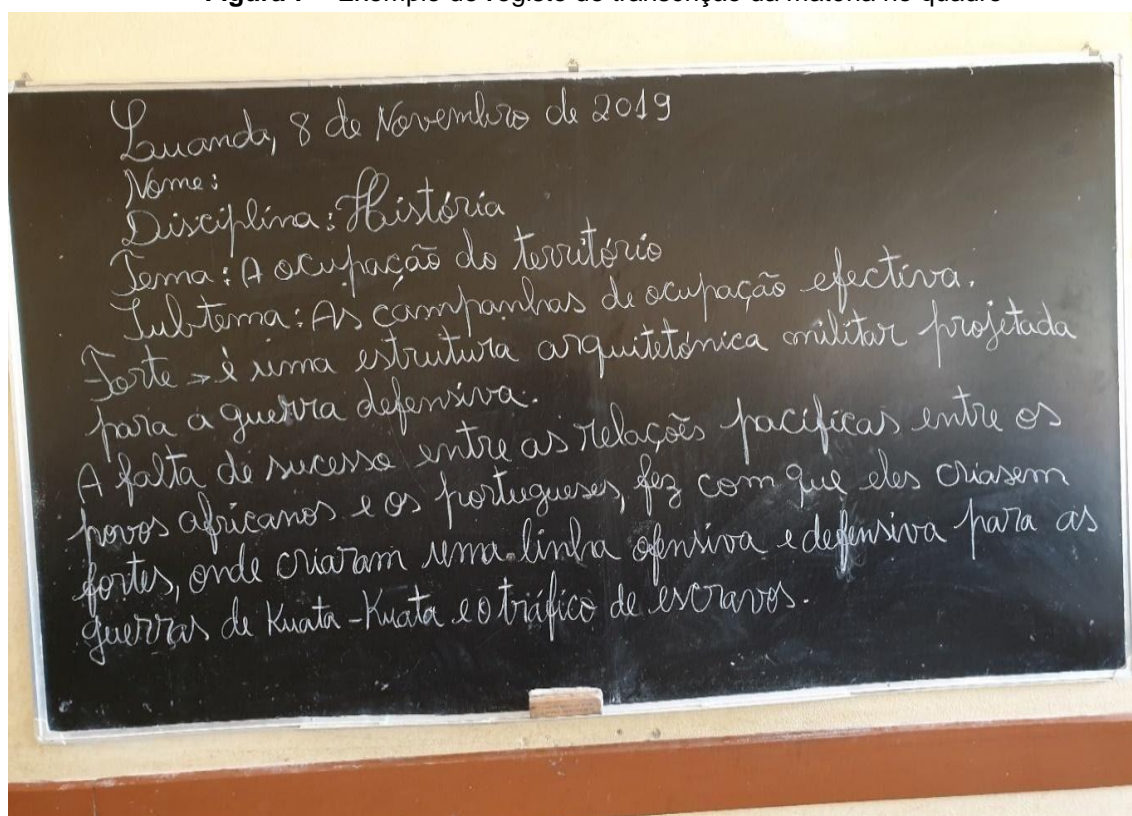 Luanda, 8 de Novembro de 2019
Nome:
Disciplina: História
Tema: A ocupação do território
Subtema: As campanhas de ocupação efectiva.
Forte → é uma estrutura arquitetónica militar projetada
para a guerra defensiva.
A falta de sucesso entre as relações pacíficas entre os
povos africanos e os portugueses, fez com que eles criasem
fortes, onde criaram uma linha ofensiva e defensiva para as
guerras de Kuata-Kuata e o tráfico de escravos.